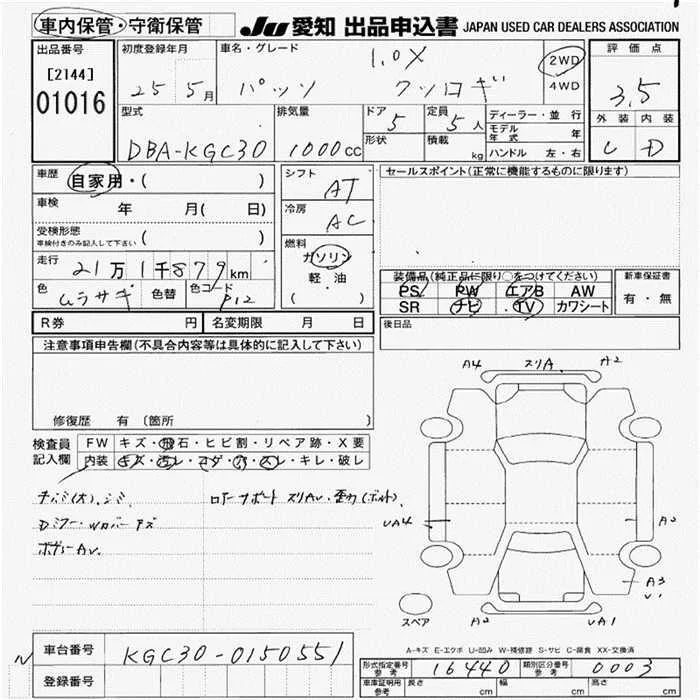 車内保管・守衛保管 JU 愛知 出品申込書 JAPAN USED CAR DEALERS ASSOCIATION
出品番号 初度登録年月 車名・グレード 1.0X 2WD 4WD 評価点
[2144] 01016 25年 5月 パッソ 3.5
型式 DBA-KGC30 排気量 1000cc ドア 5 形状 定員 5人 積載 kg
ディーラー・並行
モデル年式 年
ハンドル 左・右
外装 内装
D
車歴 自家用・( )
シフト AT
セールスポイント(正常に機能するものに限ります)
車検 年 月( 日)
冷房 AC
受検形態 車検付きのみ記入して下さい ( )
燃料 ガソリン 軽油 ( )
走行 21万1千879km
色 ムラサキ 色替 色コード P12
装備品(純正品に限り○をつけてください) 新車保証書
PS PW エアB AW 有・無
SR ナビ TV カワシート
R券 円 名変期限 月 日
後日品
注意事項申告欄(不具合内容等は具体的に記入して下さい)
修復歴 有 〔箇所 〕
検査員記入欄 FW キズ・飛石・ヒビ割・リペア跡・X要
内装 キズ・汚レ・コゲ・穴・スレ・キレ・破レ
A4 スリA A2
UA4
A3
A2 UA1
スペア
A-キズ E-エクボ U-凹み W-補修跡 S-サビ C-腐食 XX-交換済
車台番号 KGC30-0150551
登録番号
形式指定番号 参考 16440 類別区分番号 参考 0003
車庫証明用 参考 長さ cm 幅 cm 高さ cm